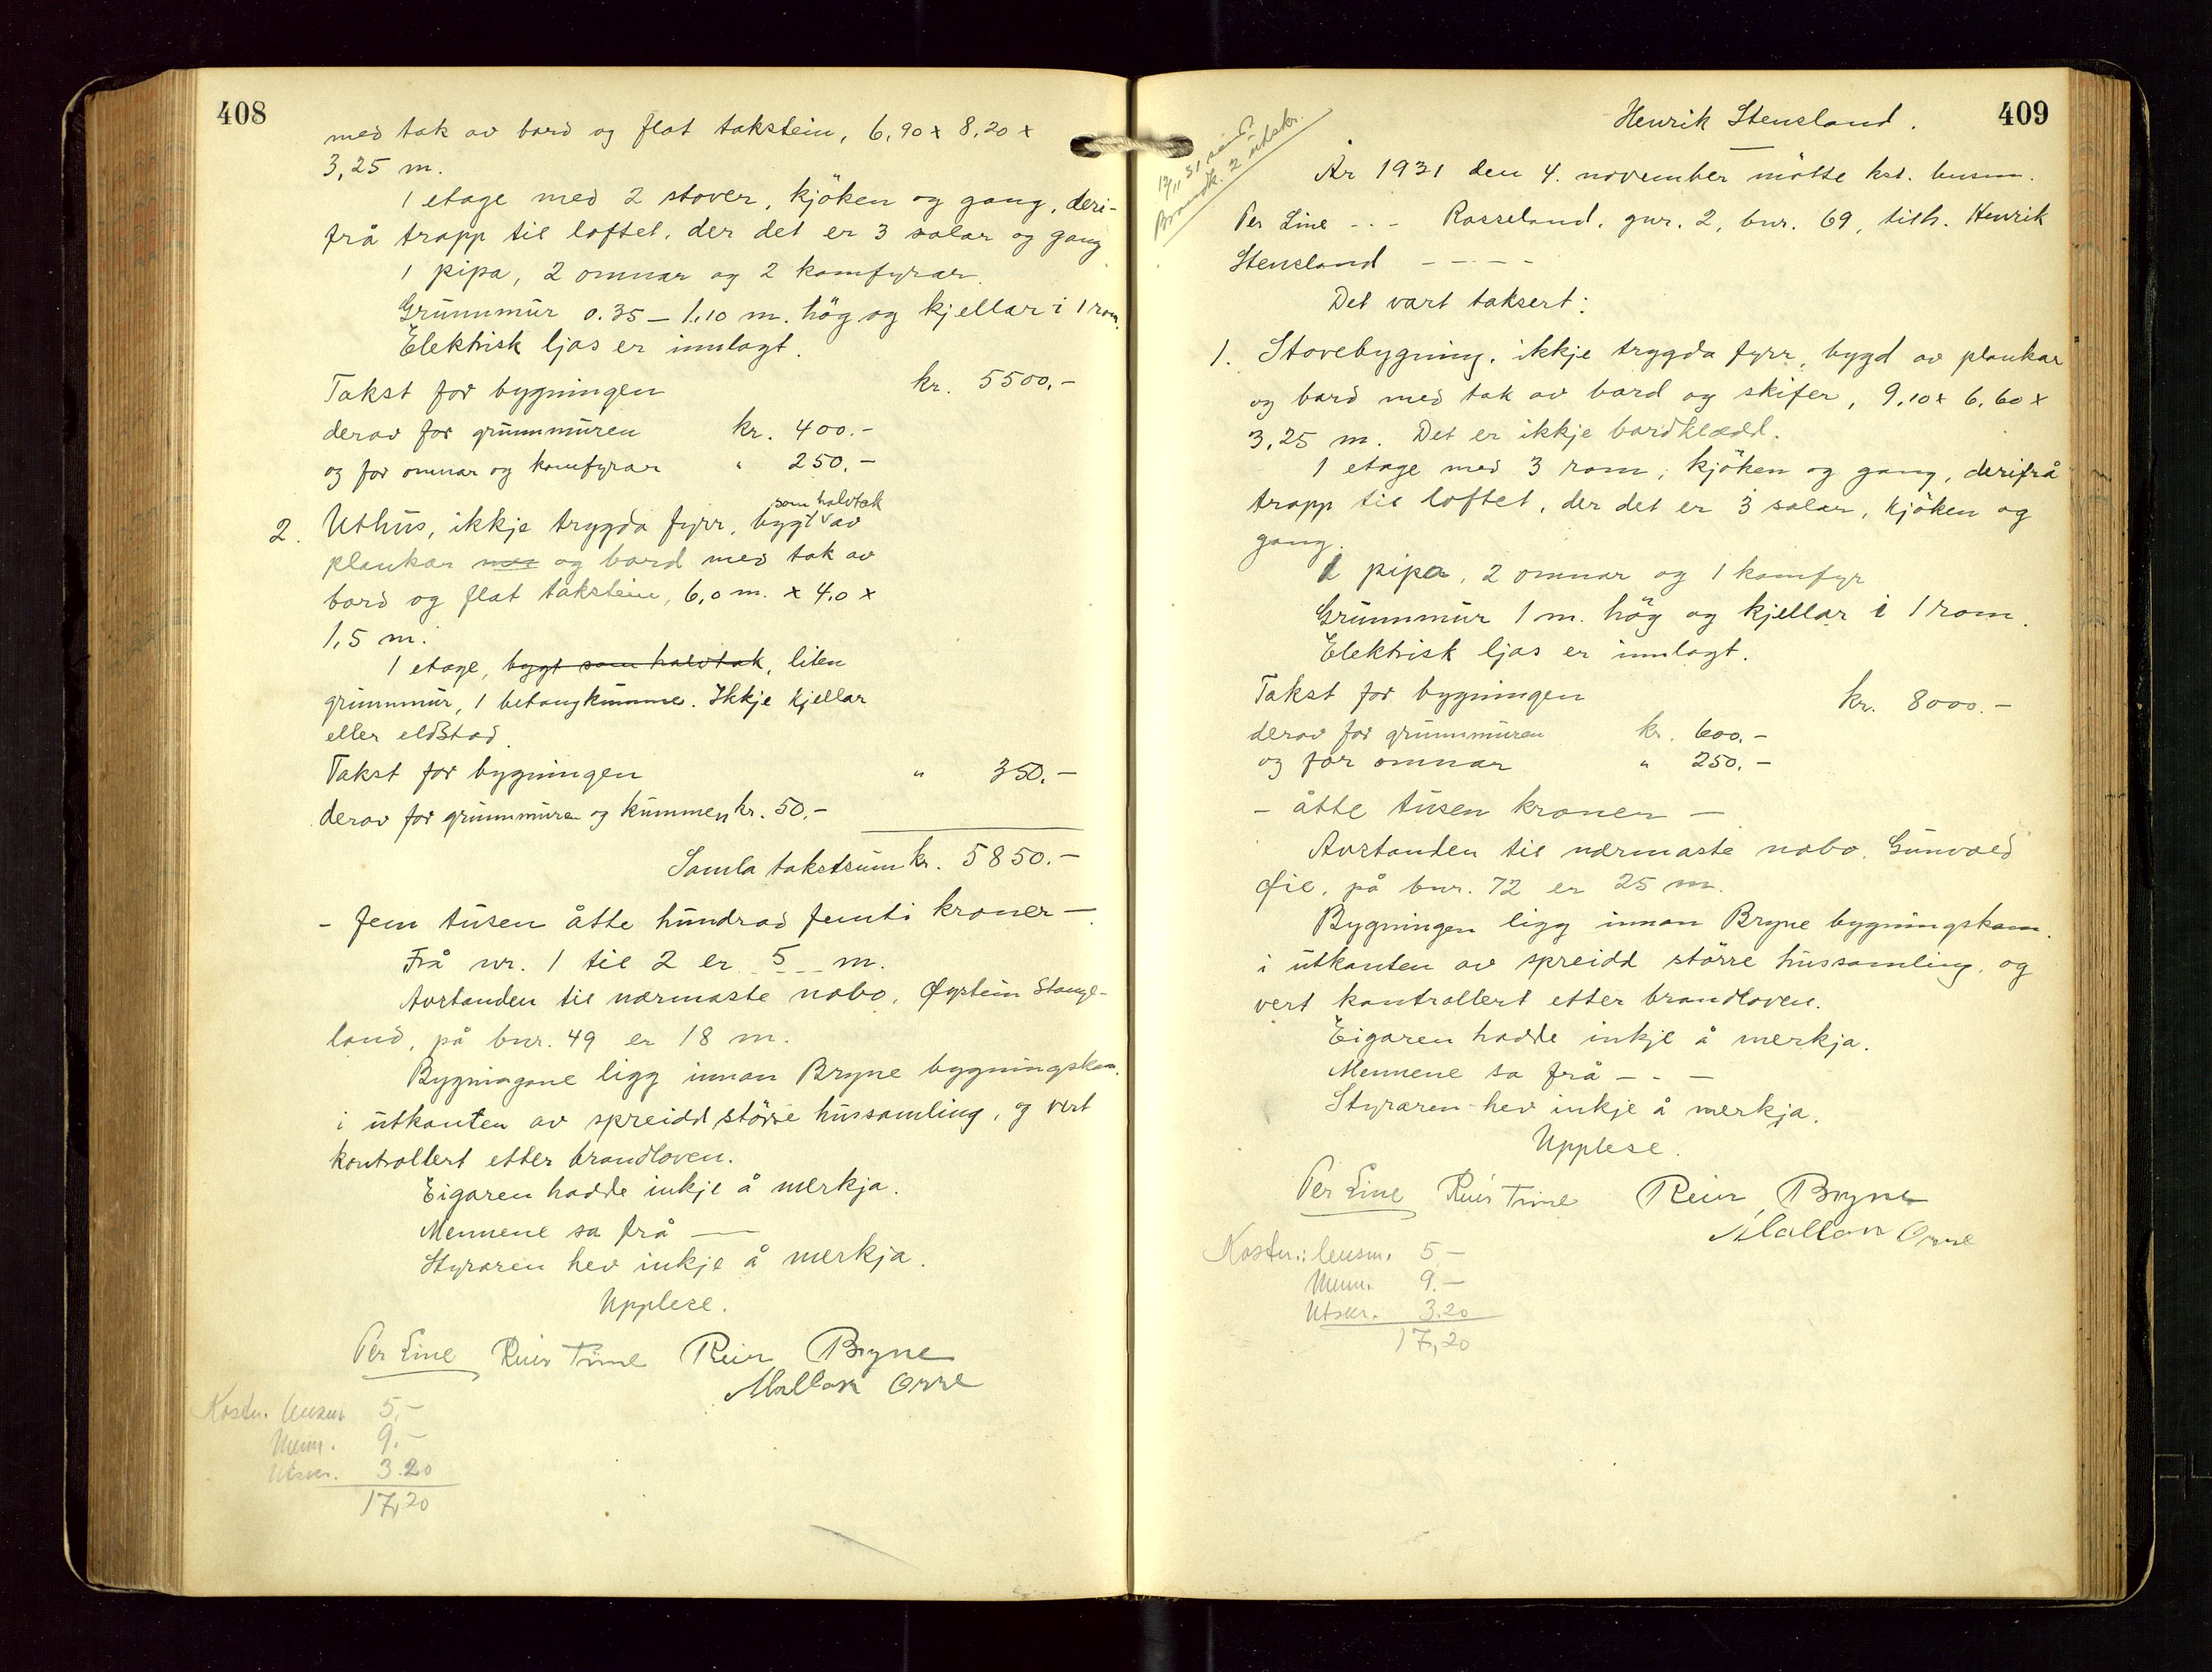 408
med tak av bord og flat takstein, 6,90 x 8,20 x
3,25 m.
1 etage med 2 stover, kjöken og gang, deri-
frå trapp til loftet, der det er 3 salar og gang
1 pipa, 2 omnar og 2 komfyrar.
Grunnmur 0.35 – 1,10 m. hög og kjellar i 1 rom.
Elektrisk ljos er innlagt.
Takst for bygningen kr. 5500,-
derav for grunnmuren kr. 400.-
og for omnar og komfyrar " 250,-
som halvtak
2. Uthus, ikkje trygda fyrr, bygt av
plankar med og bord med tak av
bord og flat takstein, 6,0 m. x 4,0 x
1,5 m.
1 etage, bygt som halvtak, liten
grunnmur, 1 betongkumme. Ikkje kjellar
eller eldstad.
Takst for bygningen " 350.-
derav for grunnmuren og kummen kr. 50.-
Samla takstsum kr. 5850.-
- fem tusen åtte hundrad femti kroner -
Frå nr. 1 til 2 er 5 m.
Avstanden til nærmaste nabo, Øystein Stange-
land, på bnr. 49 er 18 m.
Bygningane ligg innan Bryne bygningskom.
i utkanten av spreidd större hussamling, og vert
kontrollert etter brandloven.
Eigaren hadde inkje å merkja.
Mennene sa frå —
Styraren hev inkje å merkja.
Upplese.
Per Line Reier Time Reier Bryne
Mallon Orre
Kostn. lensm. 5,-
Menn. 9.-
Utskr. 3.20
17,20
409
Henrik Stensland.
12/11 31 send
Brandk. 2 utskr.
År 1931 den 4. november mötte kst. lensm.
Per Line - - - Rosseland, gnr. 2, bnr. 69, tilh. Henrik
Stensland - - - -
Det vart taksert:
1. Stovebygning, ikkje trygda fyrr, bygd av plankar
og bord med tak av bord og skifer, 9,10 x 6,60 x
3,25 m. Det er ikkje bordklædd.
1 etage med 3 rom, kjöken og gang, derifrå
trapp til loftet, der det er 3 salar, kjöken og
gang.
1 pipa, 2 omnar og 1 komfyr
Grunnmur 1 m. hög og kjellar i 1 rom.
Elektrisk ljos er innlagt.
Takst for bygningen kr. 8000.-
derav for grunnmuren kr. 600,-
og for omnar " 250.-
- åtte tusen kroner -
Avstanden til nærmaste nabo, Gunvald
Øie, på bnr. 72 er 25 m.
Bygningen ligg innan Bryne bygningskom.
i utkanten av spreidd större hussamling, og
vert kontrollert etter brandloven.
Eigaren hadde inkje å merkja.
Mennene sa frå - - -
Styraren hev inkje å merkja.
Upplese.
Per Line Reier Time Reier Bryne
Mallon Orre
Kostn.: lensm. 5 -
Menn. 9.-
Utskr. 3.20
17,20